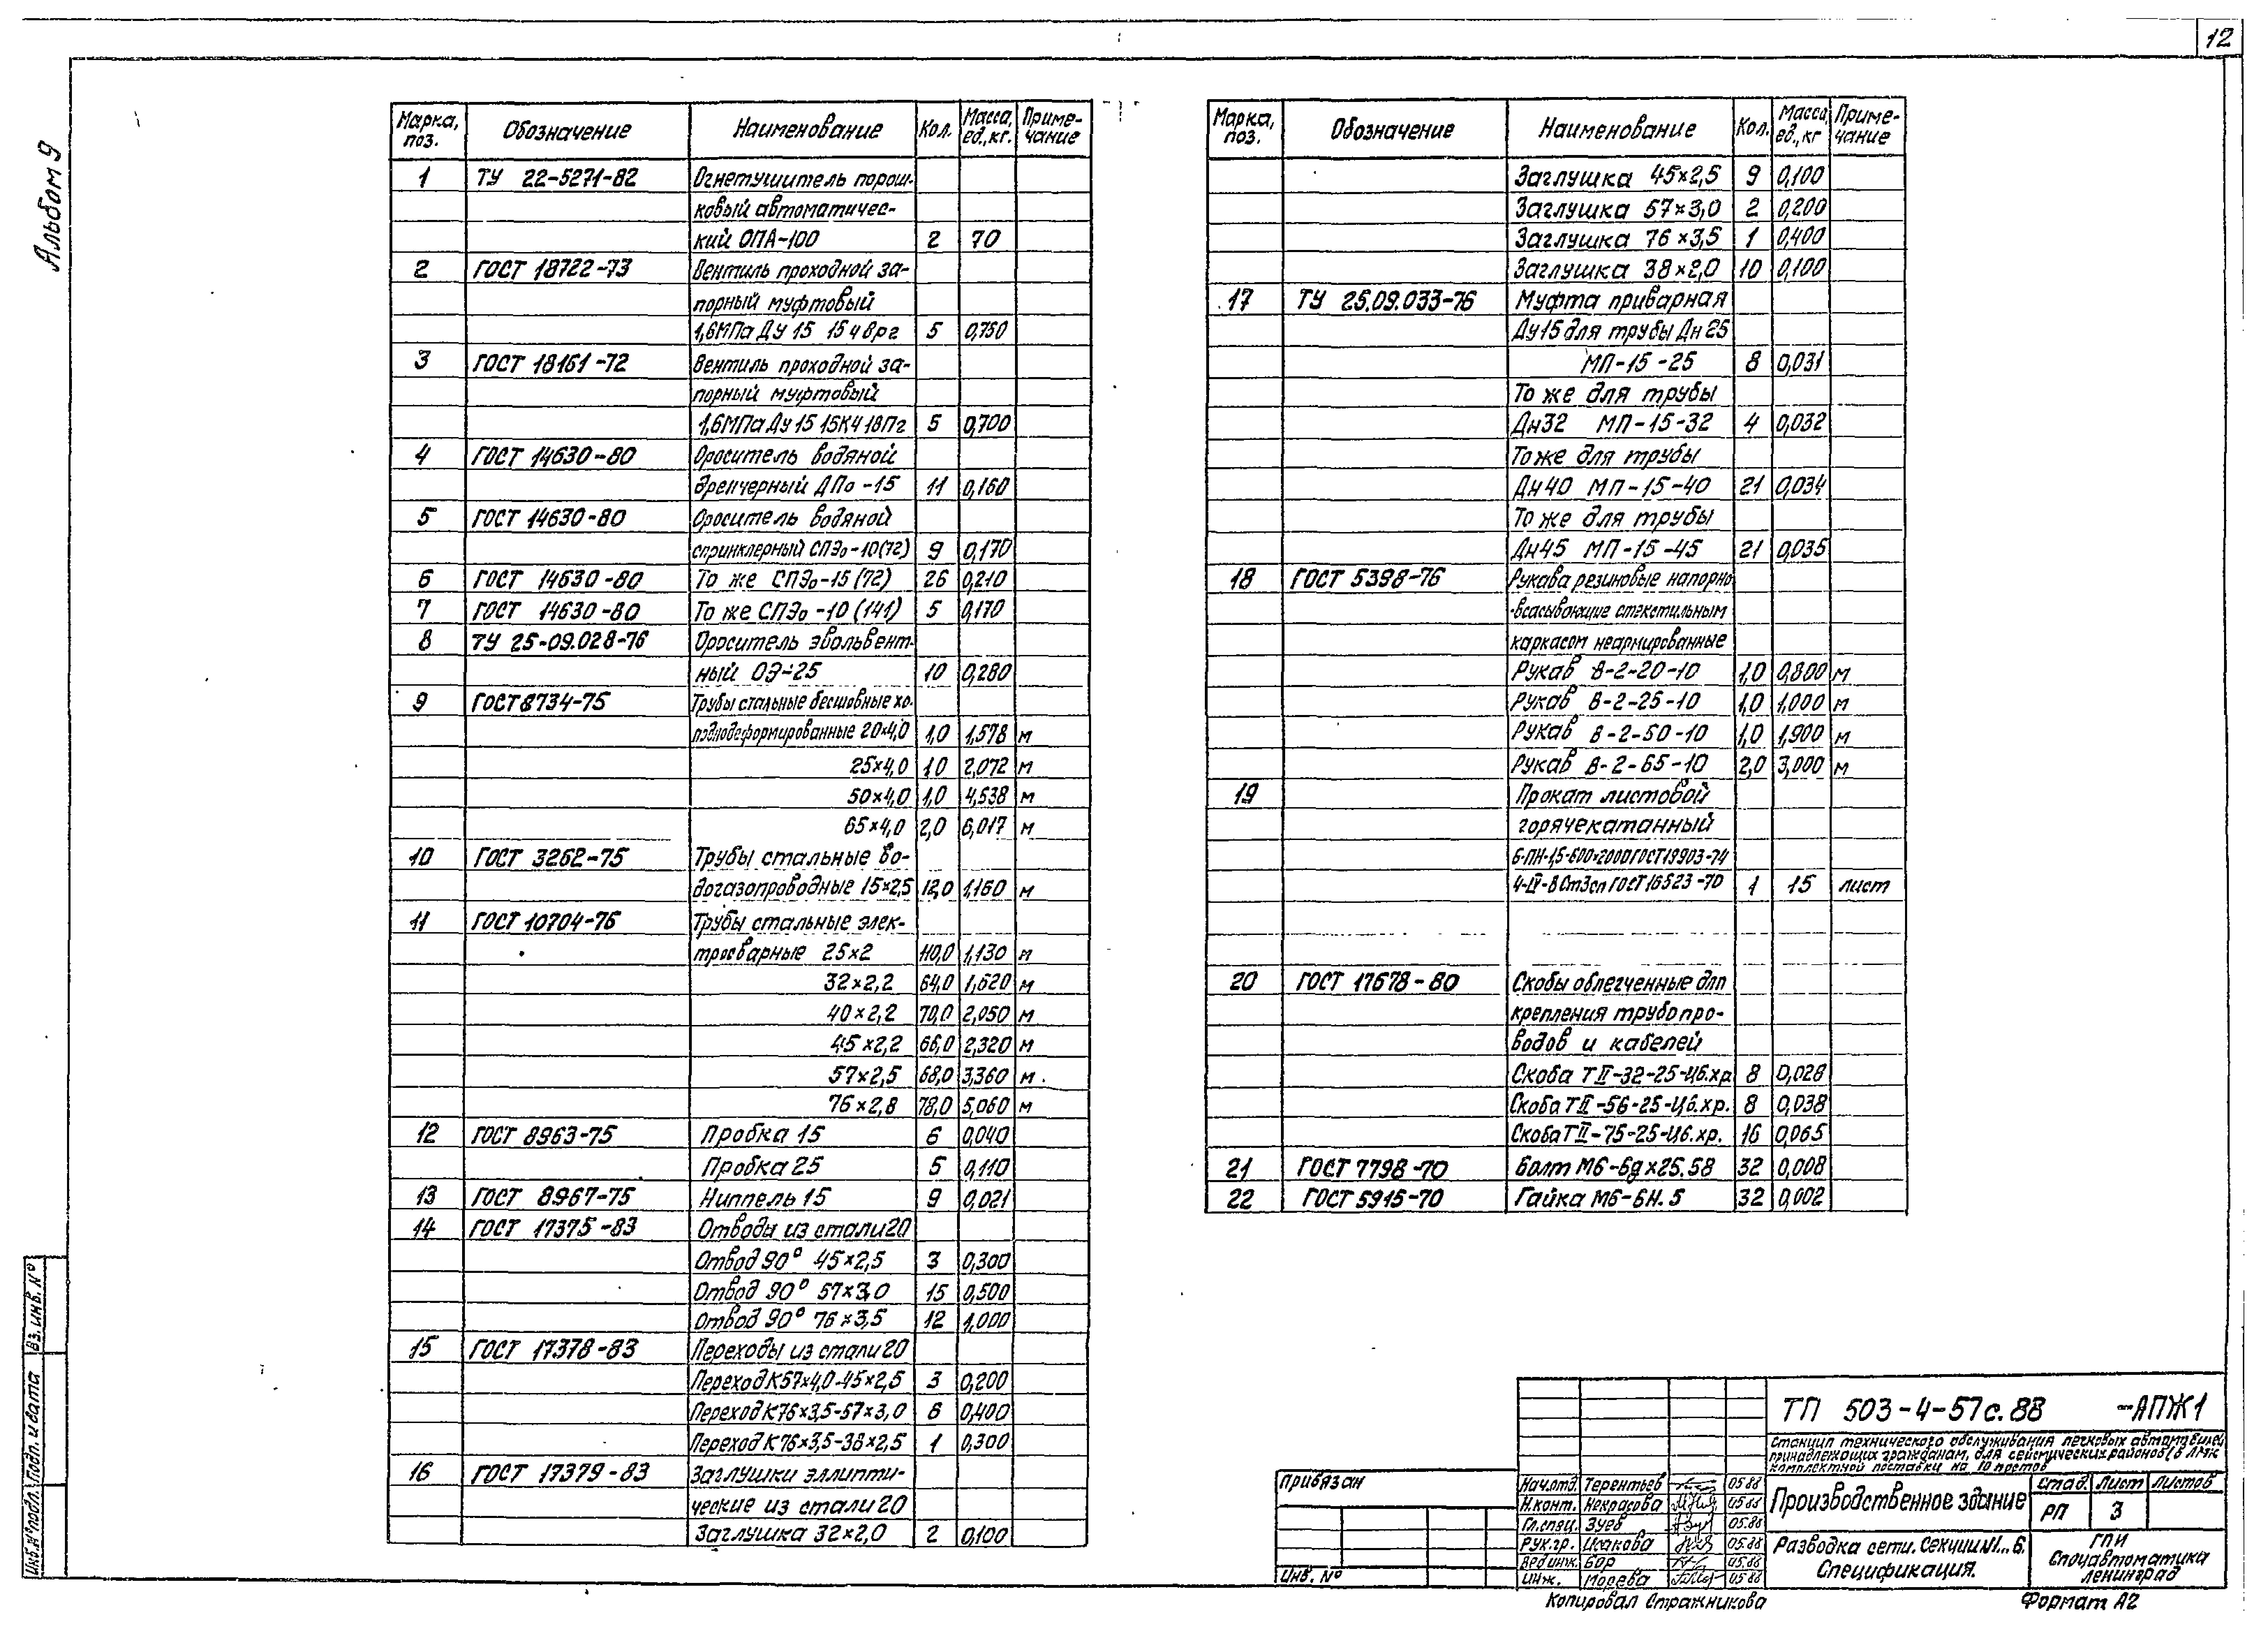 12
Альбом 9
Марка, поз. Обозначение Наименование Кол. Масса, ед.,кг. Приме-чание
1 ТУ 22-5271-82 Огнетушитель порош-
ковый автоматичес-
кий ОПА-100 2 70
2 ГОСТ 18722-73 Вентиль проходной за-
порный муфтовый
1,6МПа Ду 15 15ч8рг 5 0,750
3 ГОСТ 18161-72 Вентиль проходной за-
порный муфтовый
1,6МПа Ду 15 15кч18Пг 5 0,700
4 ГОСТ 14630-80 Ороситель водяной
дренчерный ДПо-15 11 0,160
5 ГОСТ 14630-80 Ороситель водяной
спринклерный СПЭо-10(72) 9 0,170
6 ГОСТ 14630-80 То же СПЭо-15(72) 26 0,210
7 ГОСТ 14630-80 То же СПЭо-10(141) 5 0,170
8 ТУ 25-09.028-76 Ороситель эвольвент-
ный ОЭ-25 10 0,280
9 ГОСТ 8734-75 Трубы стальные бесшовные хо-
лоднодеформированные 20×4,0 1,0 1,578 м
25×4,0 1,0 2,072 м
50×4,0 1,0 4,538 м
65×4,0 2,0 6,017 м
10 ГОСТ 3262-75 Трубы стальные во-
догазопроводные 15×2,5 12,0 1,160 м
11 ГОСТ 10704-76 Трубы стальные элек-
тросварные 25×2 110,0 1,130 м
32×2,2 64,0 1,620 м
40×2,2 70,0 2,050 м
45×2,2 66,0 2,320 м
57×2,5 68,0 3,360 м
76×2,8 78,0 5,060 м
12 ГОСТ 8963-75 Пробка 15 6 0,040
Пробка 25 5 0,110
13 ГОСТ 8967-75 Ниппель 15 9 0,021
14 ГОСТ 17375-83 Отводы из стали 20
Отвод 90° 45×2,5 3 0,300
Отвод 90° 57×3,0 15 0,500
Отвод 90° 76×3,5 12 1,000
15 ГОСТ 17378-83 Переходы из стали 20
Переход К57×4,0-45×2,5 3 0,200
Переход К76×3,5-57×3,0 6 0,400
Переход К76×3,5-38×2,5 1 0,300
16 ГОСТ 17379-83 Заглушки эллипти-
ческие из стали 20
Заглушка 32×2,0 2 0,100
Марка, поз. Обозначение Наименование Кол. Масса ед.,кг Приме-чание
Заглушка 45×2,5 9 0,100
Заглушка 57×3,0 2 0,200
Заглушка 76×3,5 1 0,400
Заглушка 38×2,0 10 0,100
17 ТУ 25.09.033-76 Муфта приварная
Ду15 для трубы Дн25
МП-15-25 8 0,031
То же для трубы
Дн32 МП-15-32 4 0,032
То же для трубы
Дн40 МП-15-40 21 0,034
То же для трубы
Дн45 МП-15-45 21 0,035
18 ГОСТ 5398-76 Рукава резиновые напорно
-всасывающие с текстильным
каркасом неармированные
Рукав В-2-20-10 1,0 0,800 м
Рукав В-2-25-10 1,0 1,000 м
Рукав В-2-50-10 1,0 1,900 м
Рукав В-2-65-10 2,0 3,000 м
19 Прокат листовой
горячекатанный
Б-ПН-1,5-600×2000 ГОСТ 19903-74
4-IV-В Ст3сп ГОСТ 16523-70 1 15 лист
20 ГОСТ 17678-80 Скобы облегченные для
крепления трубопро-
водов и кабелей
Скоба ТII-32-25-Ц6.хр 8 0,028
Скоба ТII-56-25-Ц6.хр. 8 0,038
Скоба ТII-75-25-Ц6.хр. 16 0,065
21 ГОСТ 7798-70 Болт М6-6g×25.58 32 0,008
22 ГОСТ 5915-70 Гайка М6-6Н.5 32 0,002
Инв.№подл. Подп. и дата Вз. инв. №
ТП 503-4-57с.88 -АПЖ1
Станция технического обслуживания легковых автомобилей,
принадлежащих гражданам, для сейсмических районов/в ЛМК
комплектной поставки на 10 постов
Привязан
Инв. №
Нач.отд. Терентьев 05.88
Н.конт. Некрасова 05.88
Гл.спец. Зуев 05.88
Рук.гр. Исакова 05.88
Вед.инж. Бор 05.88
Инж. Морева 05.88
Производственное здание
Стад. Лист Листов
РП 3
Разводка сети. Секции №1...6.
Спецификация.
ГПИ
Спецавтоматика
Ленинград
Копировал Стражникова
Формат А2